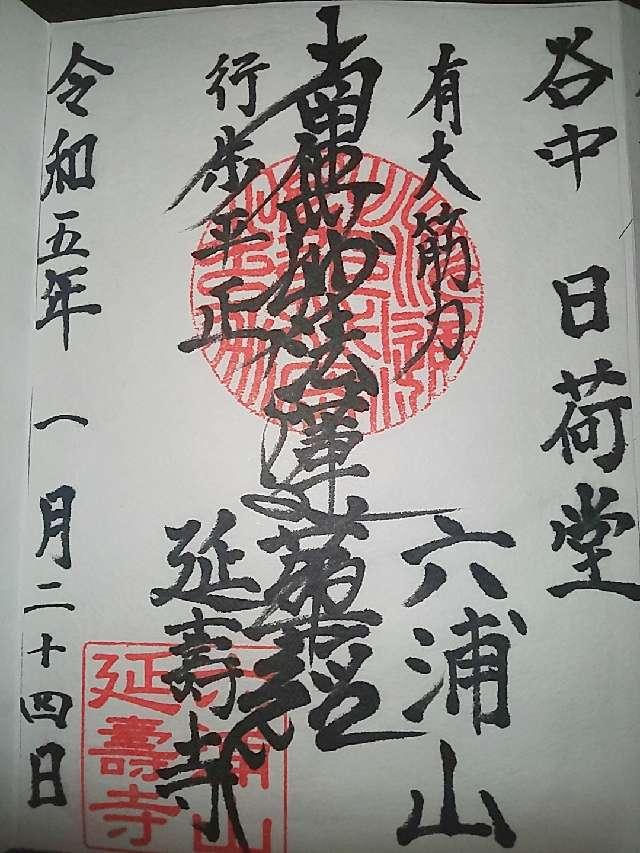 谷中 日荷堂
有大筋力
六浦山
南無妙法蓮華経
行歩平正
延壽寺
令和五年 一月二十四日
六浦山
延壽寺